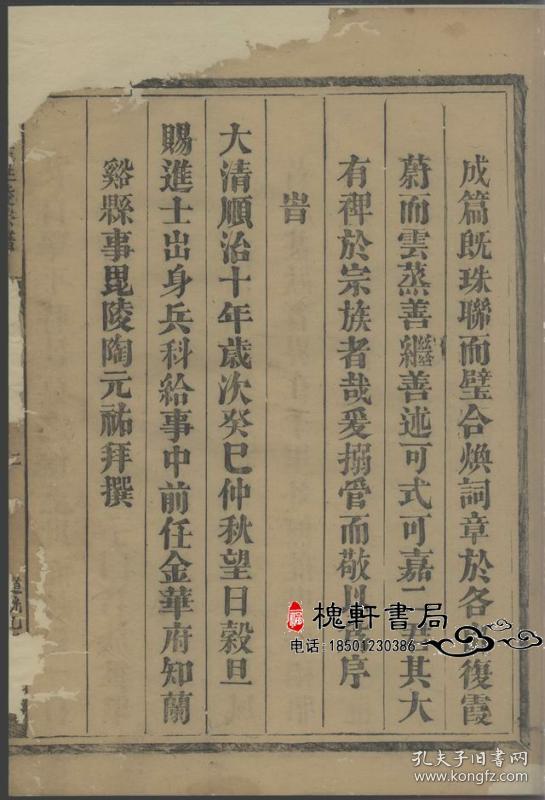 成篇既珠聯而璧合煥詞章於各復霞
蔚而雲蒸善繼善述可式可嘉二其大
有裨於宗族者哉爰搦管而敬以為序
旹
大清順治十年歲次癸巳仲秋望日穀旦
賜進士出身兵科給事中前任金華府知蘭
谿縣事毘陵陶元祐拜撰
槐軒書局
电话:18501230386
孔夫子旧书网
www.kongfz.com